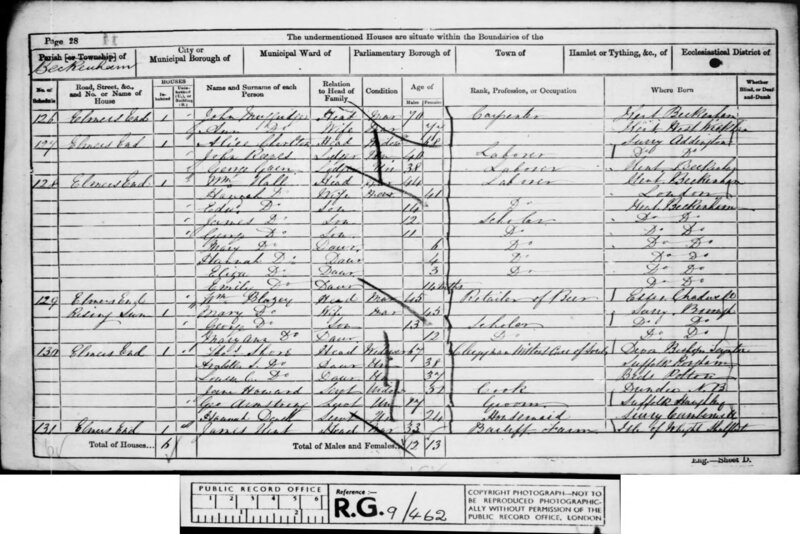 The undermentioned Houses are situate within the Boundaries of the
Page 28
Parish [or Township] of
Beckenham
City or Municipal Borough of
Municipal Ward of
Parliamentary Borough of
Town of
Hamlet or Tything, &c., of
Ecclesiastical District of
No. of Schedule
Road, Street, &c., and No. or Name of House
HOUSES
Inhabited
Uninhabited (U.), or Building (B.)
Name and Surname of each Person
Relation to Head of Family
Condition
Age of
Males
Females
Rank, Profession, or Occupation
Where Born
Whether Blind, or Deaf-and-Dumb
126 Elmers End 1 John Head Mar 70 Carpenter Kent Beckenham
Ann Do Wife Kent
127 Elmers End 1 Alice Head 68 Surrey Addington
John Lodger 40 Laborer Do Do
George Lodger 38 Laborer Kent
128 Elmers End 1 Wm Hall Head 44 Laborer Kent Beckenham
Hannah Do Wife 41 London
Son 14 Do Kent Beckenham
James Do Son 12 Scholar Do Do
George Do Son 11 Do Do Do
Mary Do Daur 6 Do Do Do
Hannah Do Daur 4 Do Do Do
Eliza Do Daur 3 Do Do Do
Emily Do Daur Do Do
129 Elmers End 1 Wm Blazey Head Mar 45 Retailer of Beer
Rising Sun Mary Do Wife Mar 45 Surrey
George Do Son 13 Scholar Do Do
Mary Ann Do Daur 12 Do Do Do
130 Elmers End 1 Head Widower 67 Clergyman without Care of Souls Devon
Daur 38 Suffolk
Louisa C. Do Daur 37
Jane Howard Servt Widow 51 Cook Dundee N.B.
Geo Armstrong Servt 27 Groom Suffolk
Hannah Servt 24 Housemaid Surrey
131 Elmers End 1 James Head Mar 33 Bailiff Farm Isle of Wight
Total of Houses... 6
Total of Males and Females... 12 13
Eng.—Sheet D.
PUBLIC RECORD OFFICE
1 2 3 4 5 6
1 2
Reference :-
R.G. 9/462
COPYRIGHT PHOTOGRAPH—NOT TO BE REPRODUCED PHOTOGRAPHICALLY WITHOUT PERMISSION OF THE PUBLIC RECORD OFFICE, LONDON